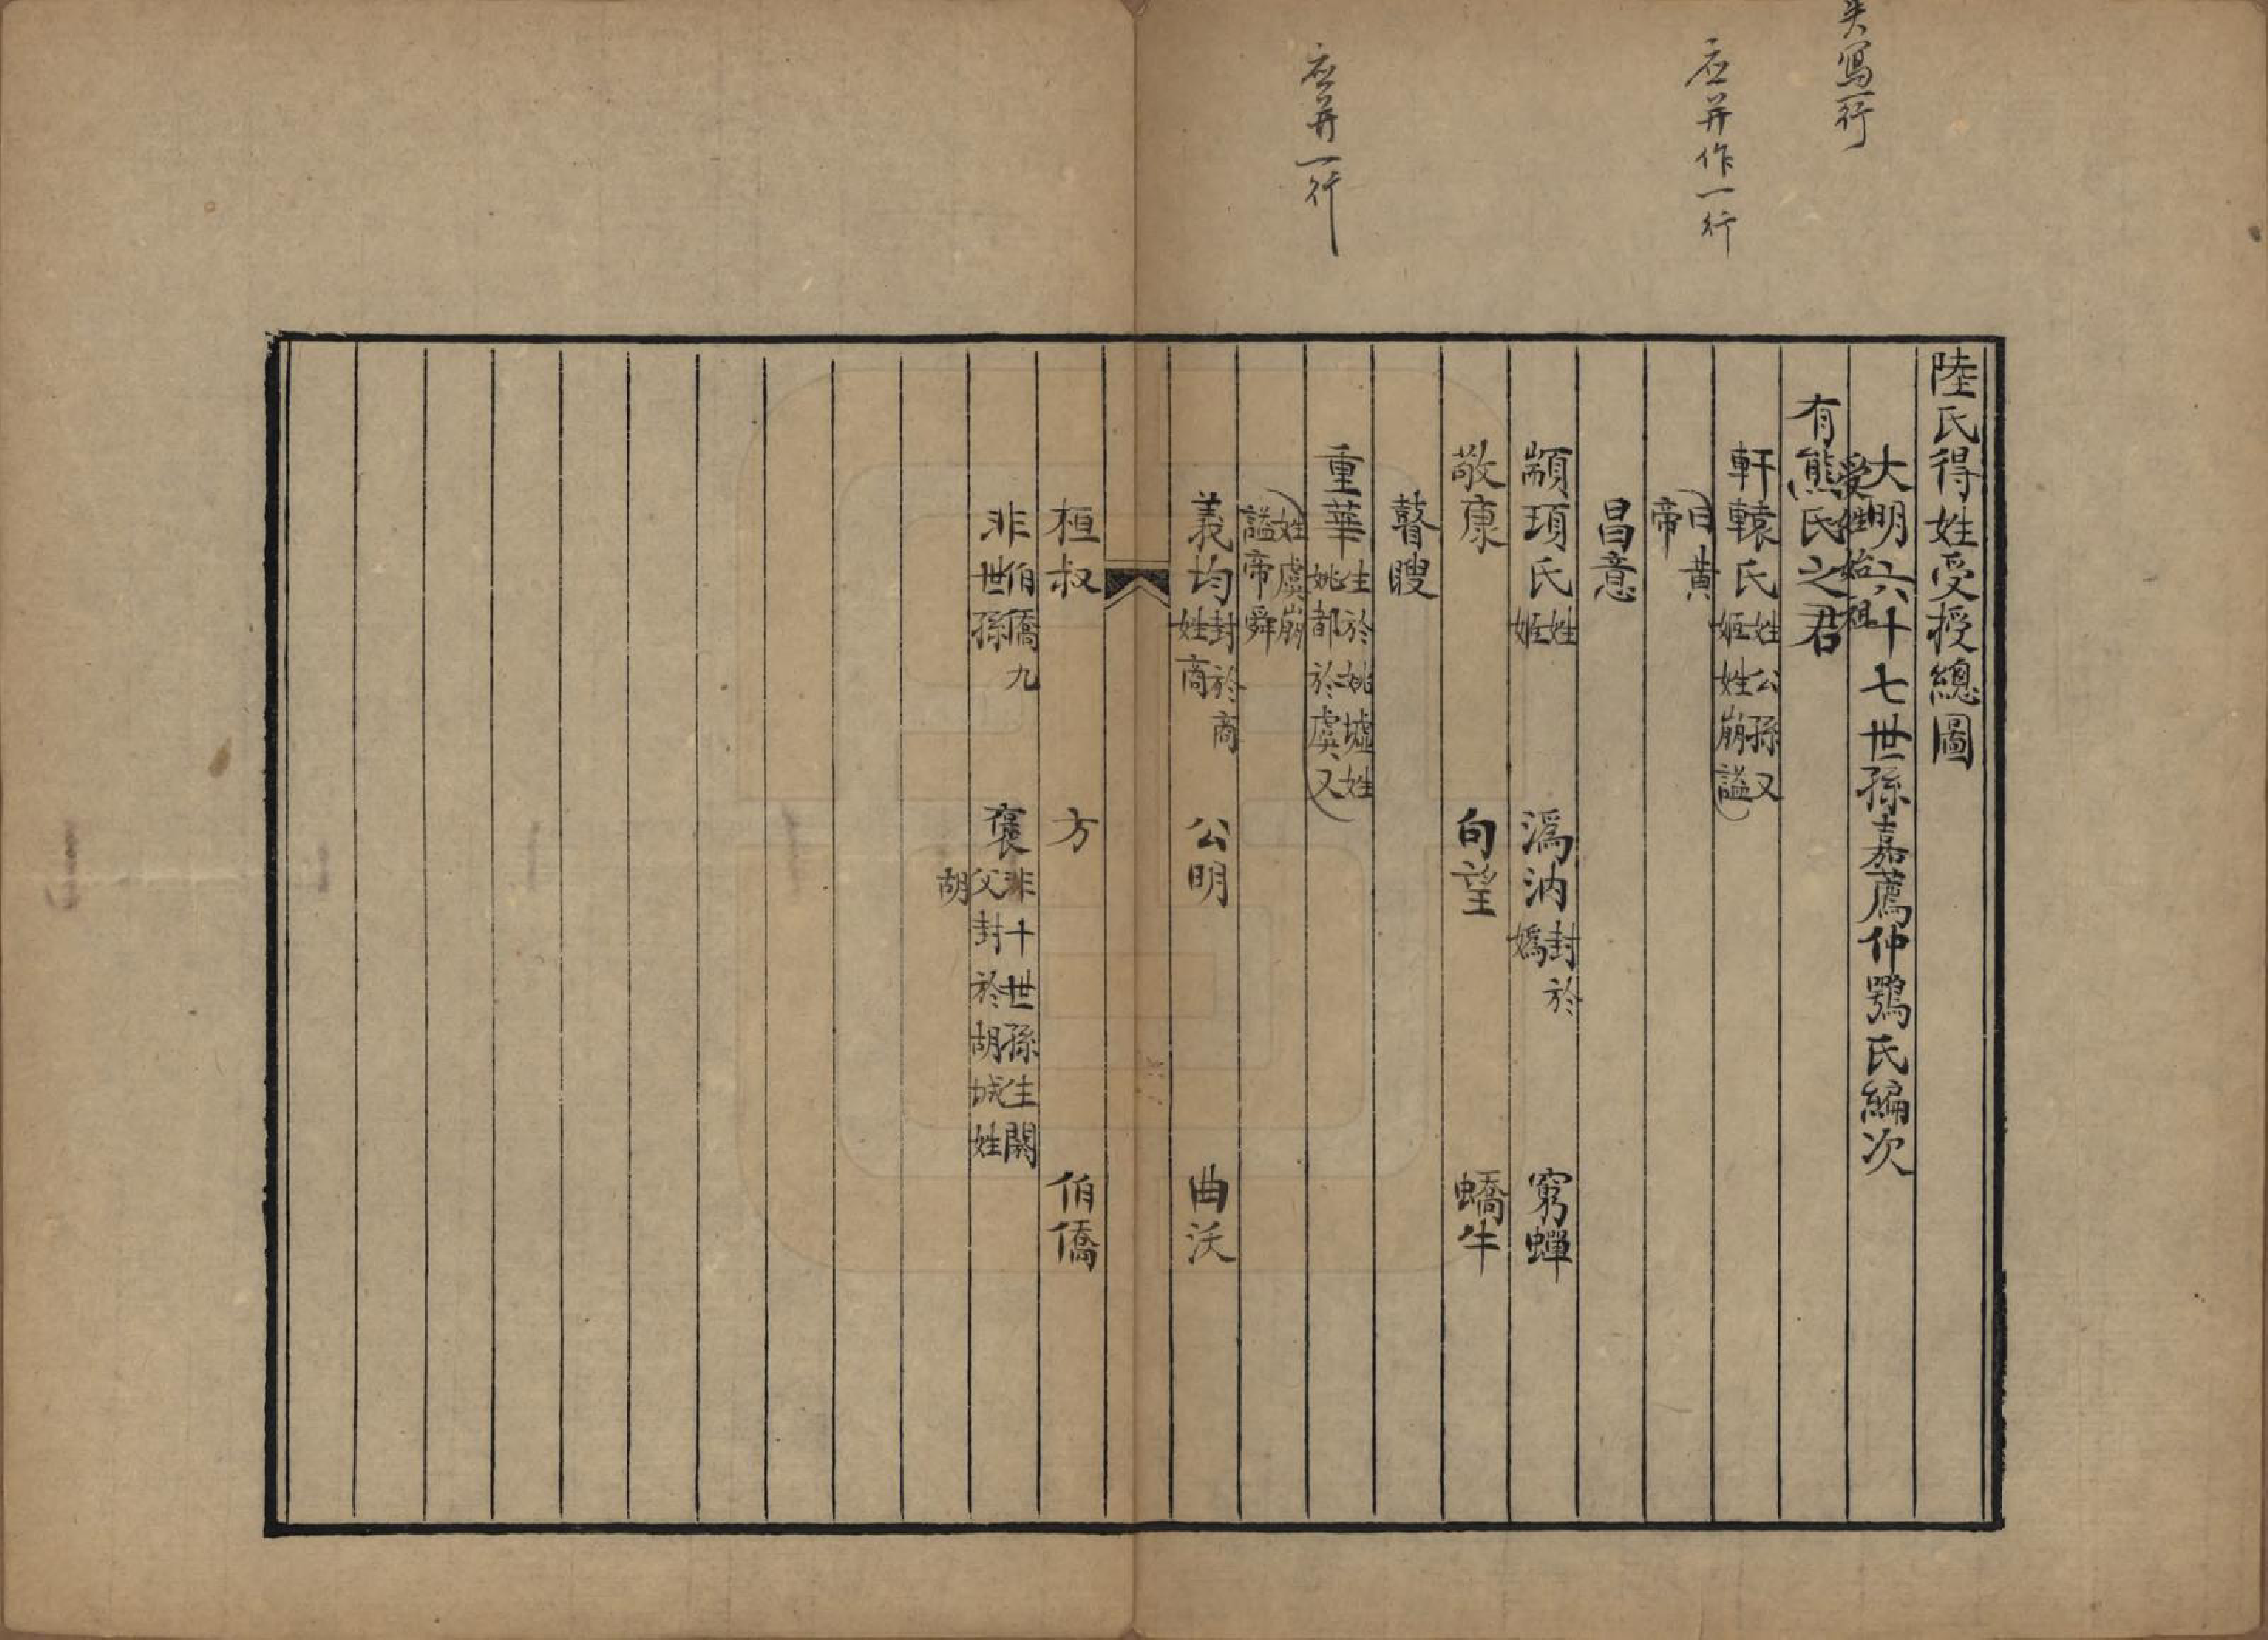 失寫一行
应并作一行
应并一行
陸氏得姓受授總圖
大明六十七世孫嘉薦仲鶚氏編次
受姓始祖
有熊氏之君
軒轅氏姓公孫又
姬姓崩諡
曰黃
帝
昌意
顓頊氏姓
姬
溈汭封於
嬀
窮蟬
敬康
句望
蟜牛
瞽瞍
重華生於姚墟姓
姚都於虞又
姓虞崩
諡帝舜
義均封於商
姓商
公明
曲沃
桓叔
方
伯僑
非伯僑九
世孫
褒非十世孫生闕
父封於胡城姓
胡